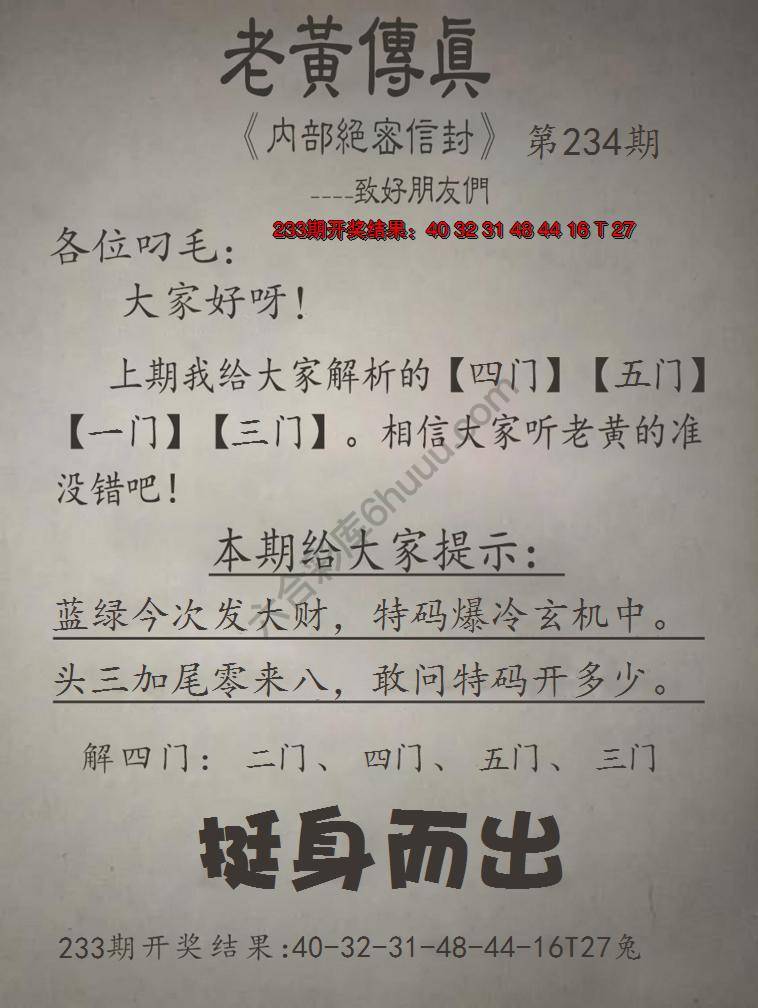 老黃傳眞
《内部絕密信封》 第234期
----致好朋友們
233期开奖结果：40 32 31 48 44 16 T 27
各位叼毛：
大家好呀！
上期我给大家解析的【四门】【五门】
【一门】【三门】。相信大家听老黄的准
没错吧！
六合彩库6huuu.com
本期给大家提示：
蓝绿今次发大财，特码爆冷玄机中。
头三加尾零来八，敢问特码开多少。
解四门：二门、四门、五门、三门
挺身而出
233期开奖结果:40-32-31-48-44-16T27兔